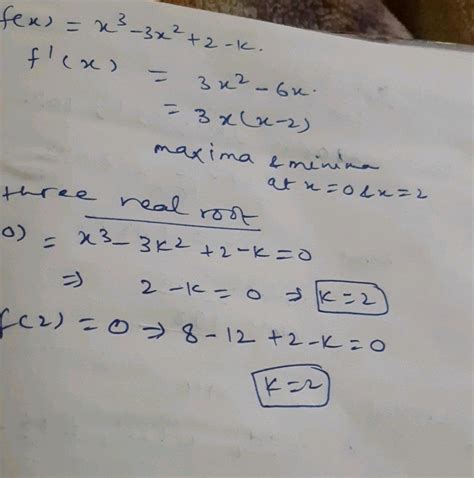 f(x) = x³-3x²+2-k.
f'(x) = 3x²-6x.
= 3x(x-2)
maxima & minima
at x=0 & x=2
three real root
0) = x³-3k²+2-k=0
⇒ 2-k=0 ⇒ k=2
f(2)=0⇒ 8-12+2-k=0
k=2